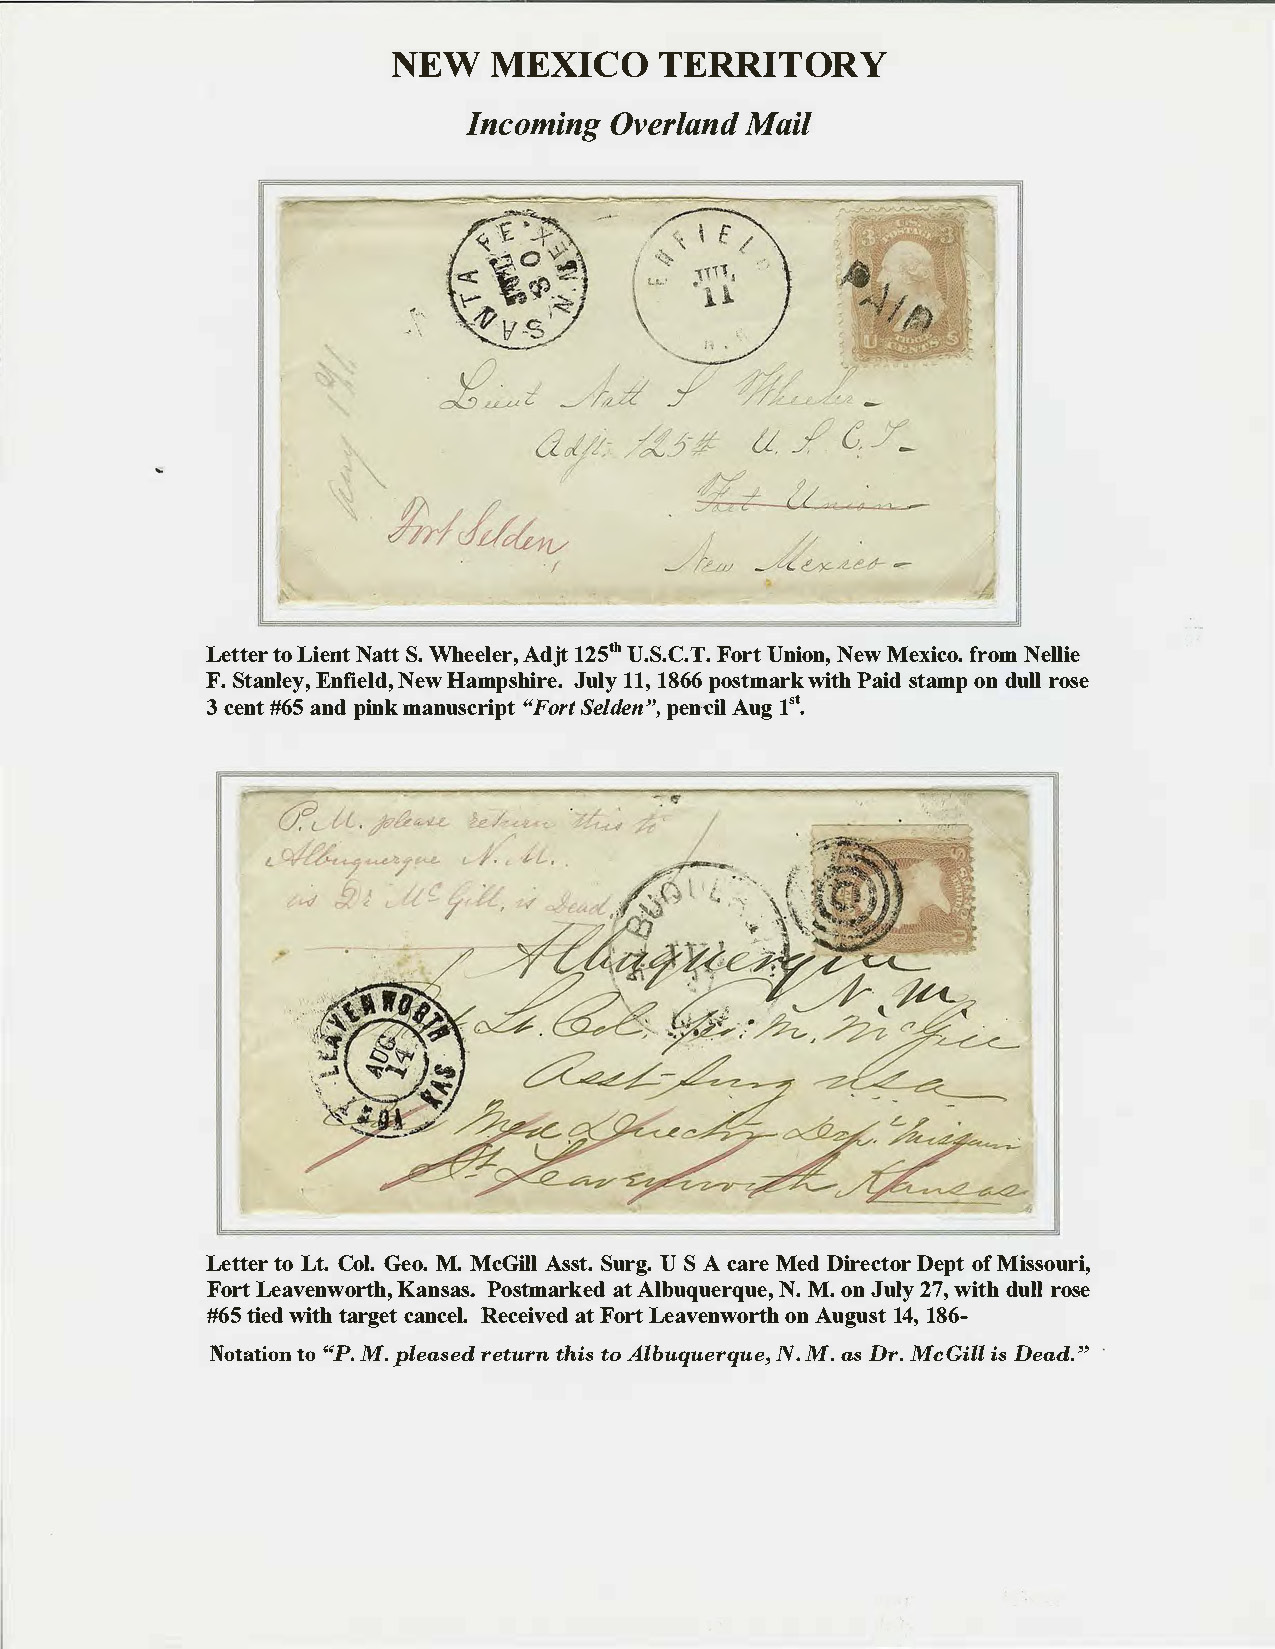 NEW MEXICO TERRITORY
Incoming Overland Mail
SANTA FE. N. MEX.
JUL
30
ENFIELD
JUL
11
N.
3 U.S. POSTAGE 3
U THREE CENTS S
PAID
Aug 1st
Lieut Natt S Wheeler-
Adjt. 125th U. S. C. T.-
Fort Union-
Fort Selden,
New Mexico-
Letter to Lient Natt S. Wheeler, Adjt 125th U.S.C.T. Fort Union, New Mexico. from Nellie
F. Stanley, Enfield, New Hampshire. July 11, 1866 postmark with Paid stamp on dull rose
3 cent #65 and pink manuscript “Fort Selden”, pencil Aug 1st.
P.M. please return this to
Albuquerque N. M.
as Dr McGill, is Dead
ALBUQUERQUE
Albuquerque
N. M,
LEAVENWORTH KAS
AUG
14
Lt. Col. Geo: M. McGill
Asst Surg USA
Med. Director Dep. Missouri
Ft. Leavenworth Kansas
Letter to Lt. Col. Geo. M. McGill Asst. Surg. U S A care Med Director Dept of Missouri,
Fort Leavenworth, Kansas. Postmarked at Albuquerque, N. M. on July 27, with dull rose
#65 tied with target cancel. Received at Fort Leavenworth on August 14, 186-
Notation to “P. M. pleased return this to Albuquerque, N. M. as Dr. McGill is Dead.”